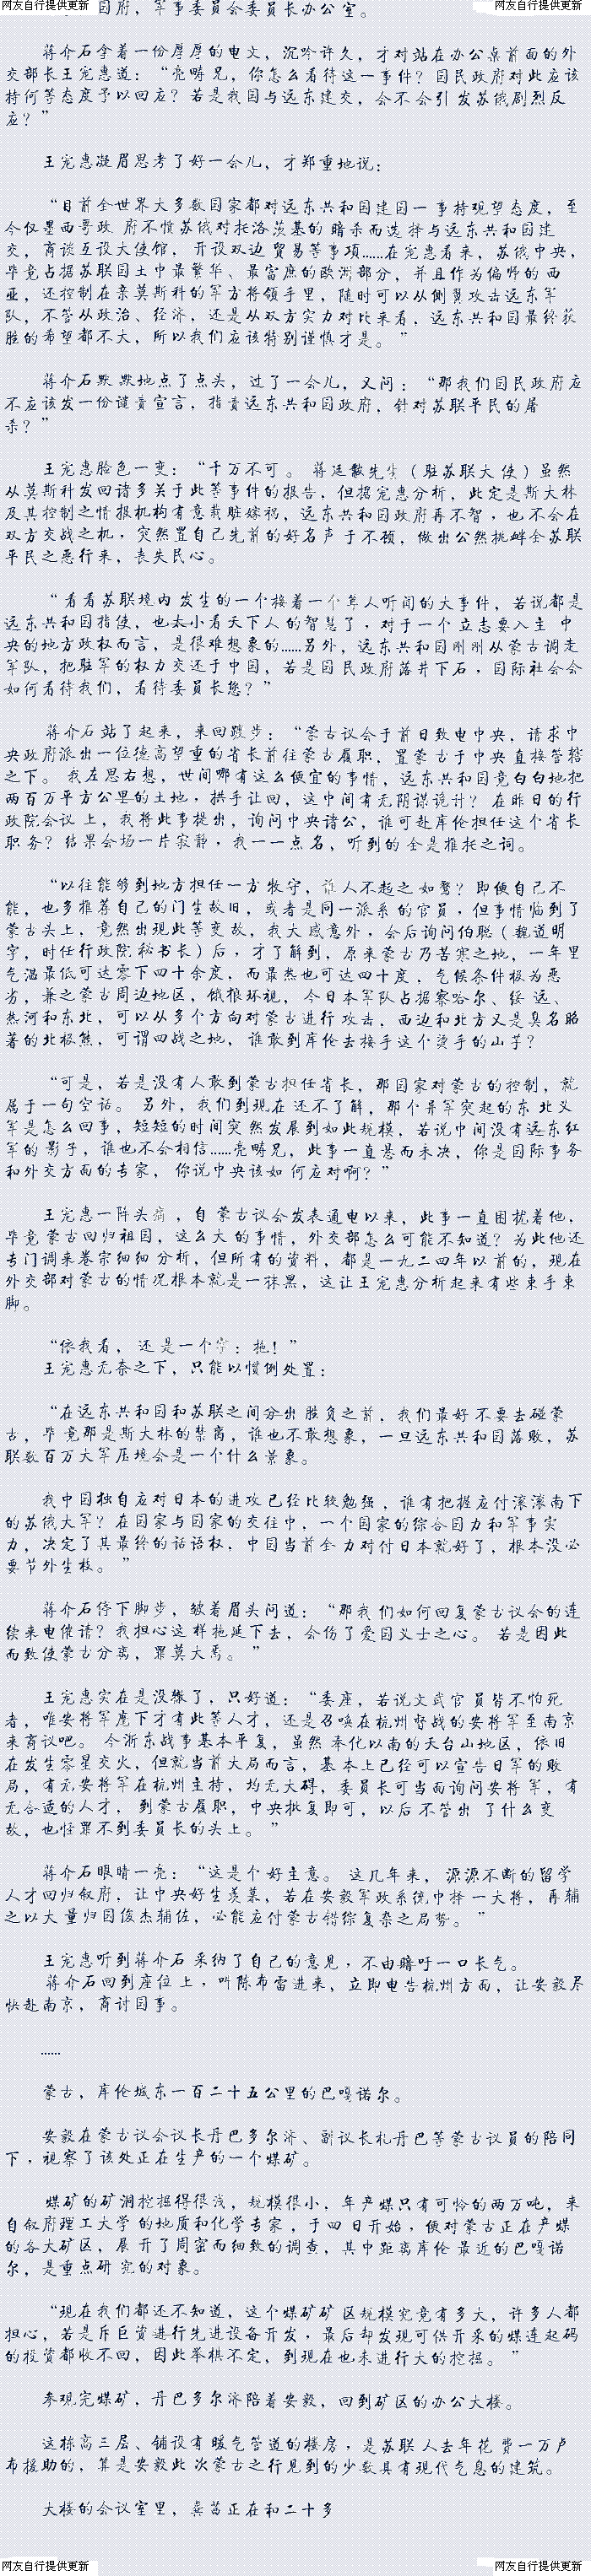 网友自行提供更新 网友自行提供更新
国府，军事委员会委员长办公室。
蒋介石拿着一份厚厚的电文，沉吟许久，才对站在办公桌前面的外
交部长王宠惠道：“亮畴兄，你怎么看待这一事件？国民政府对此应该
持何等态度予以回应？若是我国与远东建交，会不会引发苏俄剧烈反
应？”
王宠惠凝眉思考了好一会儿，才郑重地说：
“目前全世界大多数国家都对远东共和国建国一事持观望态度，至
今仅墨西哥政府不愤苏俄对托洛茨基的暗杀而选择与远东共和国建
交，商谈互设大使馆，开设双边贸易等事项……在宠惠看来，苏俄中央，
毕竟占据苏联国土中最繁华、最富庶的欧洲部分，并且作为偏师的西
亚，还控制在亲莫斯科的军方将领手里，随时可以从侧翼攻击远东军
队，不管从政治、经济，还是从双方实力对比来看，远东共和国最终获
胜的希望都不大，所以我们应该特别谨慎才是。”
蒋介石默默地点了点头，过了一会儿，又问：“那我们国民政府应
不应该发一份谴责宣言，指责远东共和国政府，针对苏联平民的屠
杀？”
王宠惠脸色一变：“千万不可。蒋廷黻先生（驻苏联大使）虽然
从莫斯科发回诸多关于此等事件的报告，但据宠惠分析，此定是斯大林
及其控制之情报机构有意栽赃嫁祸，远东共和国政府再不智，也不会在
双方交战之机，突然置自己先前的好名声于不顾，做出公然挑衅全苏联
平民之恶行来，丧失民心。
“看看苏联境内发生的一个接着一个耸人听闻的大事件，若说都是
远东共和国指使，也太小看天下人的智慧了，对于一个立志要入主中
央的地方政权而言，是很难想象的……另外，远东共和国刚刚从蒙古调走
军队，把驻军的权力交还于中国，若是国民政府落井下石，国际社会会
如何看待我们，看待委员长您？”
蒋介石站了起来，来回踱步：“蒙古议会于前日致电中央，请求中
央政府派出一位德高望重的省长前往蒙古履职，置蒙古于中央直接管辖
之下。我左思右想，世间哪有这么便宜的事情，远东共和国竟白白地把
两百万平方公里的土地，拱手让回，这中间有无阴谋诡计？在昨日的行
政院会议上，我将此事提出，询问中央诸公，谁可赴库伦担任这个省长
职务？结果会场一片寂静，我一一点名，听到的全是推托之词。
“以往能够到地方担任一方牧守，谁人不趋之如鹜？即便自己不
能，也多推荐自己的门生故旧，或者是同一派系的官员，但事情临到了
蒙古头上，竟然出现此等变故，我大感意外，会后询问伯聪（魏道明
字，时任行政院秘书长）后，才了解到，原来蒙古乃苦寒之地，一年里
气温最低可达零下四十余度，而最热也可达四十度，气候条件极为恶
劣，兼之蒙古周边地区，饿狼环视，今日本军队占据察哈尔、绥远、
热河和东北，可以从多个方向对蒙古进行攻击，西边和北方又是臭名昭
著的北极熊，可谓四战之地，谁敢到库伦去接手这个烫手的山芋？
“可是，若是没有人敢到蒙古担任省长，那国家对蒙古的控制，就
属于一句空话。另外，我们到现在还不了解，那个异军突起的东北义
军是怎么回事，短短的时间突然发展到如此规模，若说中间没有远东红
军的影子，谁也不会相信……亮畴兄，此事一直悬而未决，你是国际事务
和外交方面的专家，你说中央该如何应对啊？”
王宠惠一阵头痛，自蒙古议会发表通电以来，此事一直困扰着他，
毕竟蒙古回归祖国，这么大的事情，外交部怎么可能不知道？为此他还
专门调来卷宗细细分析，但所有的资料，都是一九二四年以前的，现在
外交部对蒙古的情况根本就是一抹黑，这让王宠惠分析起来有些束手束
脚。
“依我看，还是一个字：拖！”
王宠惠无奈之下，只能以惯例处置：
“在远东共和国和苏联之间分出胜负之前，我们最好不要去碰蒙
古，毕竟那是斯大林的禁脔，谁也不敢想象，一旦远东共和国落败，苏
联数百万大军压境会是一个什么景象。
我中国独自应对日本的进攻已经比较勉强，谁有把握应付滚滚南下
的苏俄大军？在国家与国家的交往中，一个国家的综合国力和军事实
力，决定了其最终的话语权，中国当前全力对付日本就好了，根本没必
要节外生枝。”
蒋介石停下脚步，皱着眉头问道：“那我们如何回复蒙古议会的连
续来电催请？我担心这样拖延下去，会伤了爱国义士之心。若是因此
而致使蒙古分离，罪莫大焉。”
王宠惠实在是没辙了，只好道：“委座，若说文武官员皆不怕死
者，唯安将军麾下才有此等人才，还是召唤在杭州督战的安将军至南京
来商议吧。今浙东战事基本平复，虽然奉化以南的天台山地区，依旧
在发生零星交火，但就当前大局而言，基本上已经可以宣告日军的败
局，有无安将军在杭州主持，均无大碍，委员长可当面询问安将军，有
无合适的人才，到蒙古履职，中央批复即可，以后不管出了什么变
故，也怪罪不到委员长的头上。”
蒋介石眼睛一亮：“这是个好主意。这几年来，源源不断的留学
人才回归叙府，让中央好生羡慕，若在安毅军政系统中择一大将，再辅
之以大量归国俊杰辅佐，必能应付蒙古错综复杂之局势。”
王宠惠听到蒋介石采纳了自己的意见，不由暗吁一口长气。
蒋介石回到座位上，叫陈布雷进来，立即电告杭州方面，让安毅尽
快赴南京，商讨国事。
……
蒙古，库伦城东一百二十五公里的巴嘎诺尔。
安毅在蒙古议会议长丹巴多尔济、副议长札丹巴等蒙古议员的陪同
下，视察了该处正在生产的一个煤矿。
煤矿的矿洞挖掘得很浅，规模很小，年产煤只有可怜的两万吨，来
自叙府理工大学的地质和化学专家，于四日开始，便对蒙古正在产煤
的各大矿区，展开了周密而细致的调查，其中距离库伦最近的巴嘎诺
尔，是重点研究的对象。
“现在我们都还不知道，这个煤矿矿区规模究竟有多大，许多人都
担心，若是斥巨资进行先进设备开发，最后却发现可供开采的煤连起码
的投资都收不回，因此举棋不定，到现在也未进行大的挖掘。”
参观完煤矿，丹巴多尔济陪着安毅，回到矿区的办公大楼。
这栋高三层、铺设有暖气管道的楼房，是苏联人去年花费一万卢
布援助的，算是安毅此次蒙古之行见到的少数具有现代气息的建筑。
大楼的会议室里，龚茜正在和二十多
网友自行提供更新 网友自行提供更新